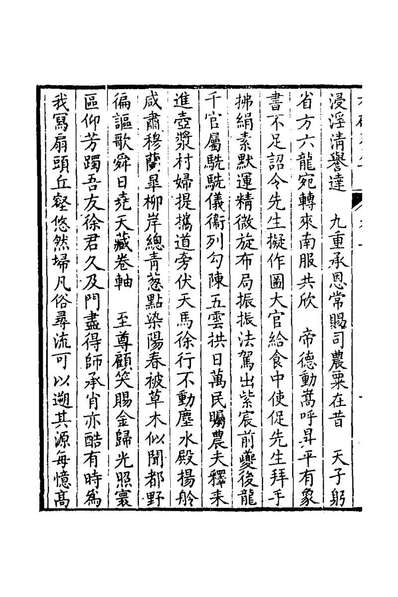 浸淫清譽達　九重承恩常賜司農粟在昔　天子躬
省方六龍宛轉來南服共欣　帝德動嵩呼昇平有象
書不足詔令先生擬作圖大官給食中使促先生拜手
拂絹素默運精微旋布局振振法駕出紫宸前夔後龍
千官屬駪駪儀衛列勾陳五雲拱日萬民矚農夫釋耒
進壺漿村婦提攜道旁伏天馬徐行不動塵水殿揚舲
咸肅穆蘭皋柳岸總青葱點染陽春被草木似聞都野
徧謳歌舜日堯天藏卷軸　至尊顧笑賜金歸光照寰
區仰芳躅吾友徐君久及門盡得師承肖亦酷有時爲
我冩扇頭丘壑悠然埽凡俗尋流可以遡其源每憶髙